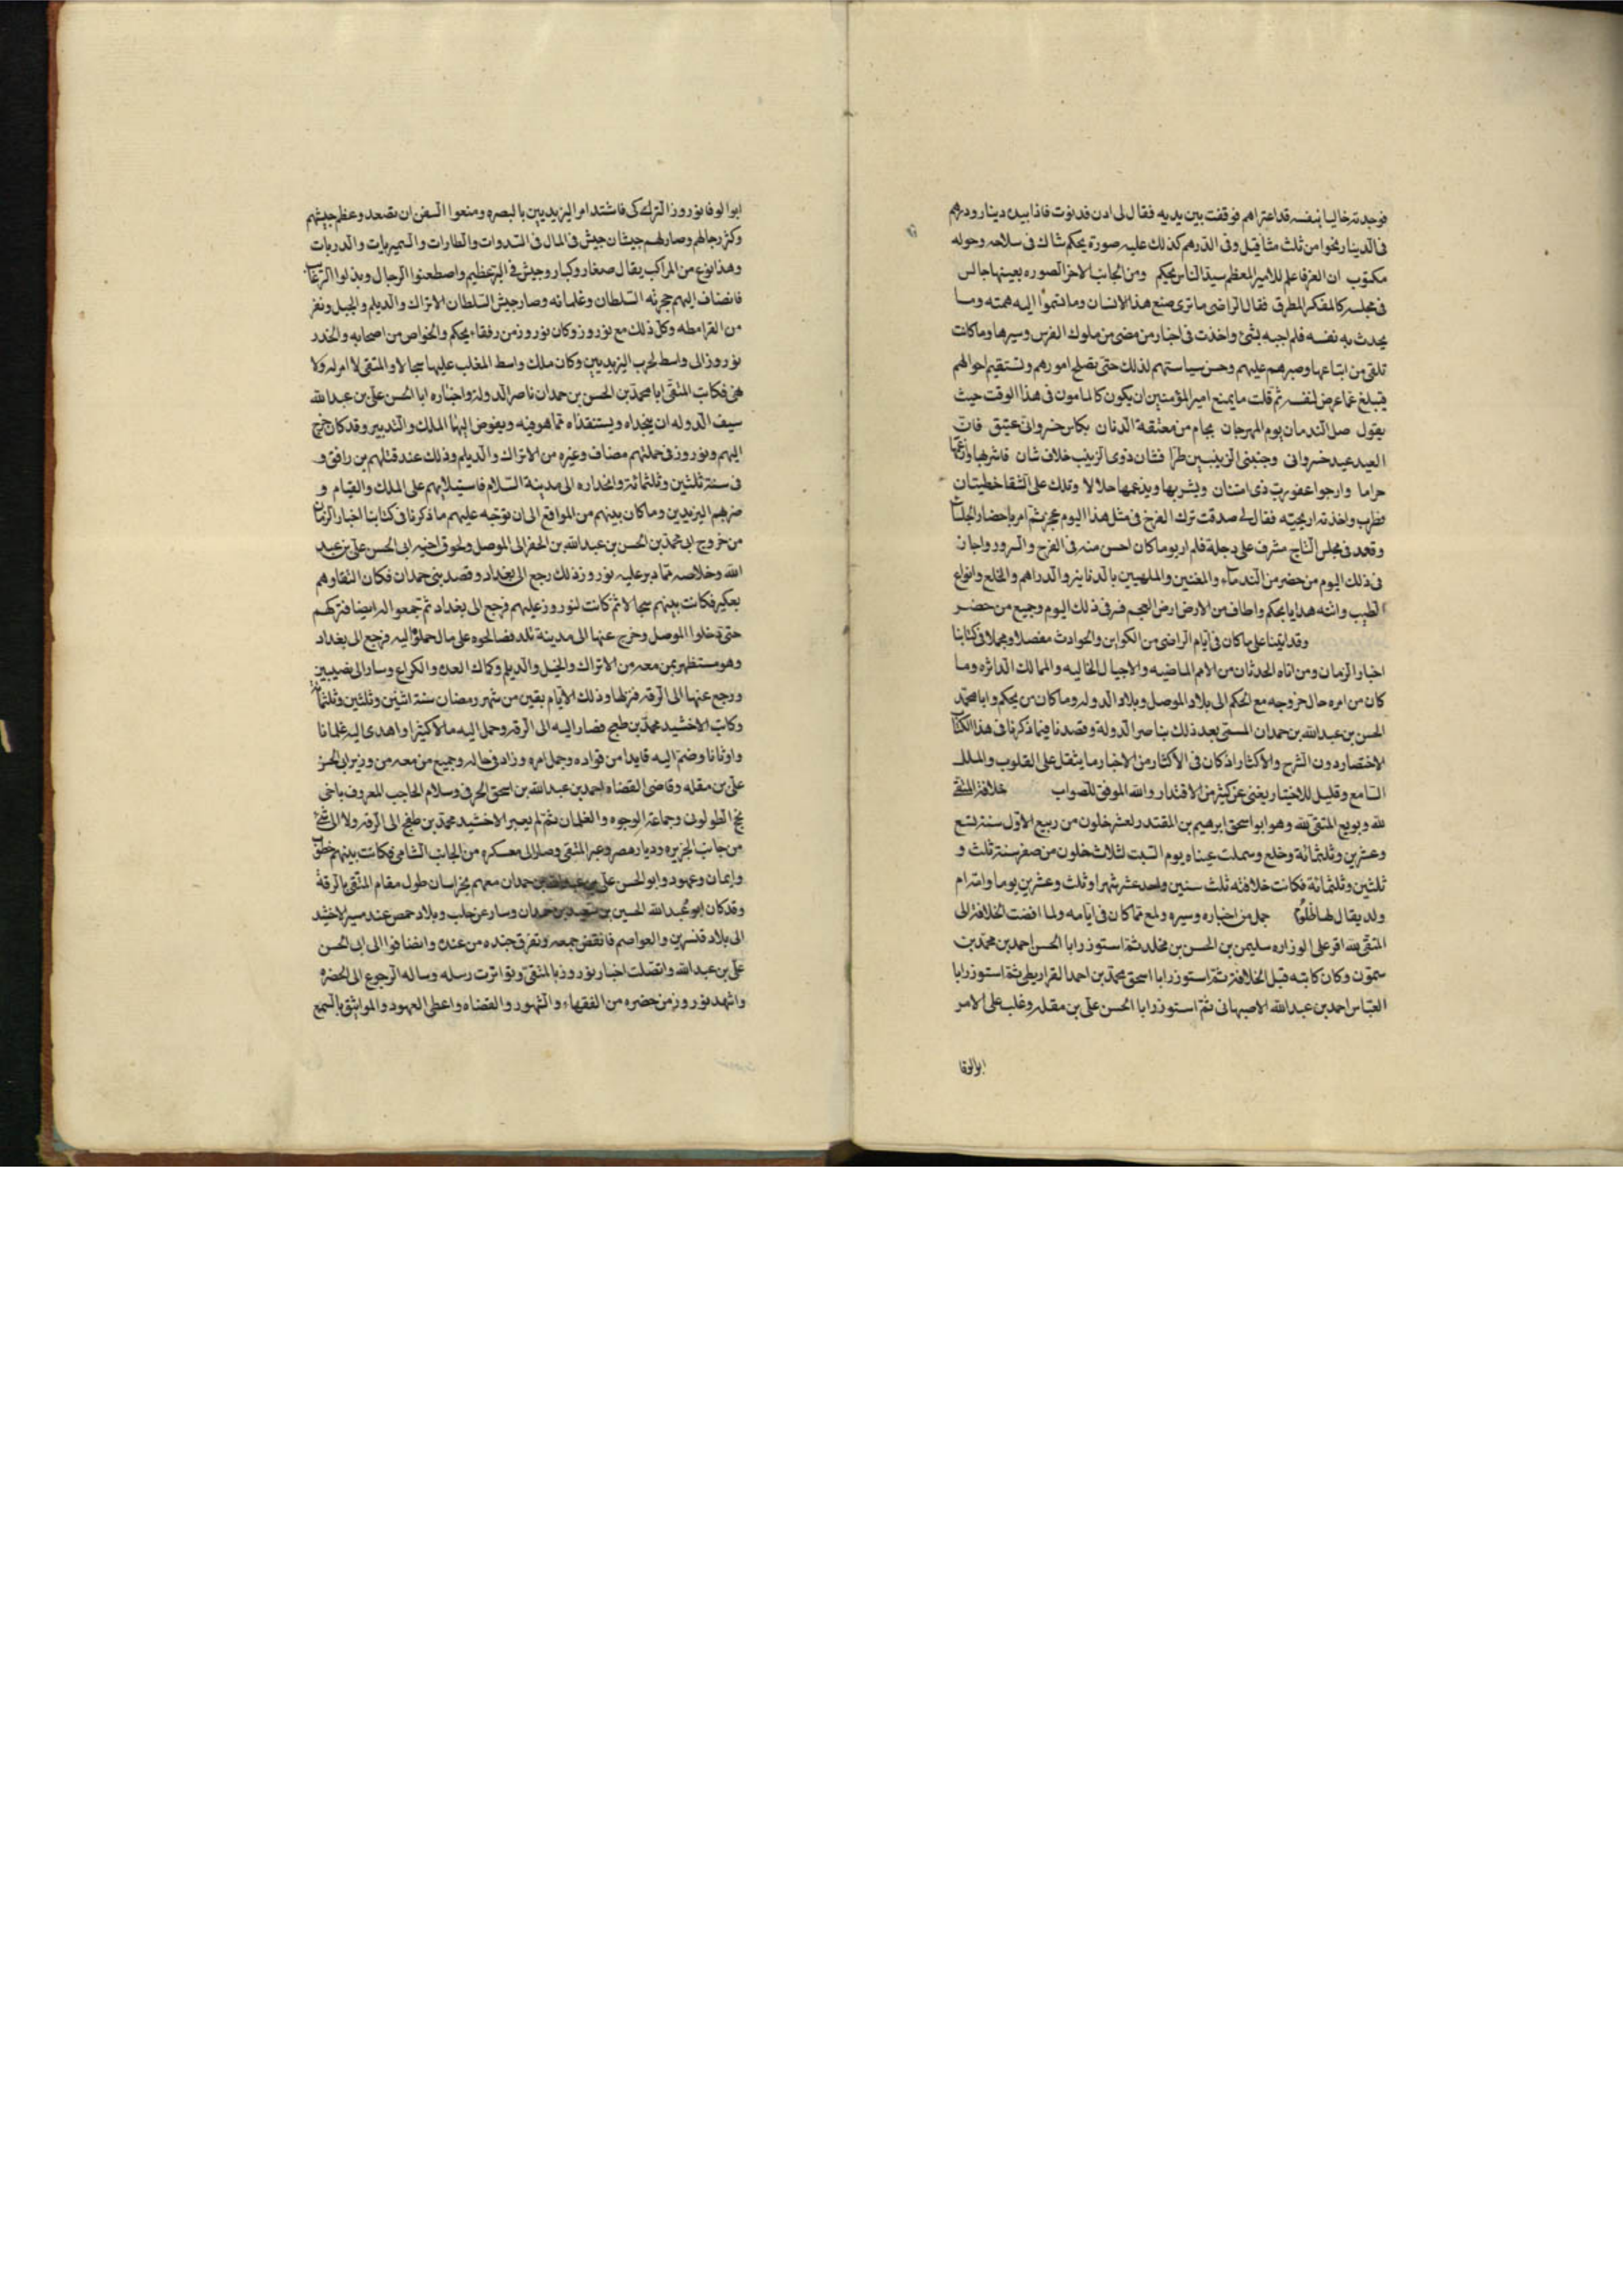 فوجدته خاليا بنفسه قد اعتراهم فوقفت بين يديه فقال لى ادن فدنوت فاذا بيده دينار ودرهم
فى الدينار نحوا من ثلث مثاقيل وفى الدرهم كذلك عليه صورة يحكم شاك فى سلاحه وحوله
مكتوب ان العز فاعلم للامير المعظم سيد الناس بجكم ومن الجانب الاخر الصوره بعينها جالس
فى مجلسه كالمفكر المطرق فقال الراضى ما ترى صنع هذا الانسان وما تسموا اليه همته وما
يحدث به نفسه فلم اجبه بشئ واخذت فى اخبار من مضى من ملوك الفرس وسيرها وما كانت
تلقى من اتباعها وصبرهم عليهم وحسن سياستهم لذلك حتى تصلح امورهم وتستقيم احوالهم
فيبلغ عما عرض لنفسه ثم قلت ما يمنع امير المؤمنين ان يكون كالمامون فى هذا الوقت حيث
يقول صل الندمان يوم المهرجان بجام من معتقة الدنان بكاس خسروانى عتيق فان
العيد عيد خسروانى وجنبنى الزبيبين طرا فشان ذوى الزبيب خلاف شان فاشربها وازعمها
حراما وارجوا عفو رب ذى امتنان ويشربها ويزعمها حلالا وتلك على الشقا خطيتان
فطرب واخذته اريحية فقال لى صدقت ترك الفرح فى مثل هذا اليوم عجز ثم امر باحضار الجلساء
وقعد فى مجلس التاج مشرف على دجلة فلم ار يوما كان احسن منه فى الفرح والسرور واجاز
فى ذلك اليوم من حضر من الندماء والمغنين والملهيين بالدنانير والدراهم والخلع وانواع
الطيب واتته هدايا بحكم والطاف من الارض ارض العجم فرق ذلك اليوم وجميع من حضر
وقد اتينا على ما كان فى ايام الراضى من الكواين والحوادث مفصلا ومجملا فى كتابنا
اخبار الزمان ومن اتاه الحدثان من الامم الماضيه والاجيال الخاليه والممالك الداثره وما
كان من امره حال خروجه مع الحكم الى بلاد الموصل وبلاد الدوله وما كان من يحكم وابا محمد
الحسن بن عبد الله بن حمدان المسمى بعد ذلك بناصر الدولة وقصدنا فيما ذكرنا فى هذا الكتاب
الاختصار دون الشرح والاكثار اذ كان فى الاكثار من الاخبار ما يثقل على القلوب والملل
السامع وقليل للاختيار يغنى عن كثير من الاقتدار والله الموفق للصواب خلافة المتقى
لله وبويع المتقى لله وهو ابو اسحق ابرهيم بن المقتدر لعشر خلون من ربيع الاول سنة تسع
وعشرين وثلثمائة وخلع وسملت عيناه يوم السبت لثلاث خلون من صفر سنة ثلث و
ثلثين وثلثمائة فكانت خلافته ثلث سنين واحد عشر شهرا وثلث وعشرين يوما وامه ام
ولد يقال لها جمل من اخباره وسيره ولمع مما كان فى ايامه ولما افضت الخلافة الى
المتقى لله اقر على الوزاره سليمن بن الحسن بن مخلد ثم استوزر ابا الحسن احمد بن محمد بن
ميمون وكان كاتبه قبل الخلافة ثم استوزر ابا اسحق محمد بن احمد القراريطى ثم استوزر ابا
العباس احمد بن عبد الله الاصبهانى ثم استوزر ابا الحسن على بن مقله وغلب على الامر
ابو الوفا
ابو الوفا نوروز التركى فاشتد امر اليزيديين بالبصره ومنعوا السفن ان تصعد وعظم جيشهم
وكثر رجالهم وصار لهم جيشان جيش فى المال فى الشدوات والطارات والسميريات والدربات
وهذا نوع من المراكب يقال صغار وكبار وجيش فى البر عظيم واصطعنوا الرجال وبذلوا الرغائب
فانضاف اليهم حجرية السلطان وغلمانه وصار جيش السلطان الاتراك والديلم والجبل ونفر
من القرامطه وكل ذلك مع نوروز وكان نوروز من رفقاء يحكم والخواص من اصحابه والحدر
نوروز الى واسط لحرب اليزيديين وكان ملك واسط المغلب عليها سجالا والمتقى لا امر له ولا
نهى فكاتب المتقى ابا محمد بن الحسن بن حمدان ناصر الدولة واخاه ابا الحسن على بن عبد الله
سيف الدوله ان ينجداه ويستنقذاه مما هو فيه ويفوض اليهما الملك والتدبير وقد كان خرج
اليهم ونوروز فى جملتهم مضاف وغيره من الاتراك والديلم وذلك عند قتلهم بن رافق و
فى سنة ثلثين وثلثمائة وانحداره الى مدينة السلام فاستيلايهم على الملك والقيام و
ضربهم اليزيدين وما كان بينهم من المواقع الى ان توجه عليهم ما ذكرنا فى كتابنا اخبار الزمان
من خروج ابى محمد بن الحسن بن عبد الله بن الحفز الى الموصل ولحوق اخيه ابى الحسن على بن عبد
الله وخلاصه مما دبر عليه نوروز ذلك رجع الى بغداد وقصد بنى حمدان فكان التقاوهم
بعكبر فكانت بينهم سجالا ثم كانت لنوروز عليهم فرجع الى بغداد ثم تجمعوا له ايضا فتركهم
حتى دخلوا الموصل وخرج عنها الى مدينة بلد فصالحوه على مال حملوا اليه فرجع الى بغداد
وهو مستظهر بمن معه من الاتراك والخيل والديلم وكمال العدة والكراع وسار الى نصيبين
ورجع عنها الى الرقه فنزلها وذلك الايام بقين من شهر رمضان سنة اثنين وثلثين وثلثمائة
وكاتب الاخشيد محمد بن طبح فصار اليه الى الرقه وحمل اليه مالا كثيرا واهدى اليه غلمانا
واوثانا وضم اليه قايدا من قواده وجمل امره وزاد فى حاله وجميع من معه من وزير ابى الحسن
على بن مقله وقاضى القضاه احمد بن عبد الله بن اسحق الحرفى وسلام الحاجب المعروف باخى
نجح الطولونى وجماعة الوجوه والغلمان ثم لم يعبر الاخشيد محمد بن طفج الى الرقه ولا الى شئ
من جانب الجزيره وديار مصر وعبر المتقى وصار الى معسكره من الجانب الشامى فكانت بينهم خطوب
وايمان وعهود وابو الحسن على بن عبد الله بن حمدان معهم بخراسان طول مقام المتقى بالرقة
وقد كان ابو عبد الله الحسين بن سعيد بن حمدان وسار عن حلب وبلاد حمص عند مسير الاخشيد
الى بلاد قنسرين والعواصم فانقض جمعه وتفرق جنده من عنده وانضافوا الى ابى الحسن
على بن عبد الله واتصلت اخبار نوروز بالمتقى وتواترت رسله وساله الرجوع الى الحضره
واشهد نوروز من حضره من الفقهاء والشهور والقضاه واعطى العهود والمواثيق بالسمع